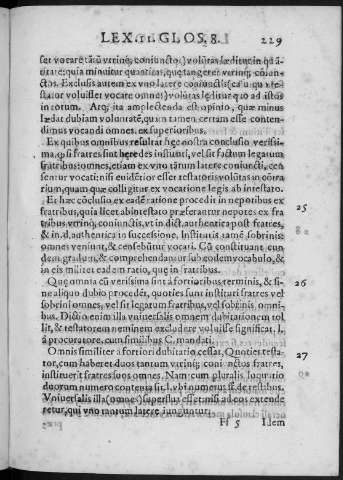 LEX. GLOS. 8. 229
set vocare tātū vtrinq; coniunctos) volūtas læditur in quā-
titate: quia minuitur quantitas, quę tangeret vtrinq; cōiun-
ctos. Exclusis autem ex vno latere coniunctis (ea qua te-
stator voluisset vocare omnes) volūtas lęditur quo ad istos
in totum. Atq; ita amplectenda est opinio, quæ minus
lædat dubiam voluntatē, quam tamen certam esse conten-
dimus vocandi omnes. ex superioribus.
Ex quibus omnibus resultat hęc nostra conclusio verissi-
ma, quòd si fratres sint heredes instituti, vel sit factum legatum
fratribus: omnes, etiam ex vno tātum latere coniuncti, cen-
sentur vocati: nisi euidētior esset testatoris volūtas in cōtra
rium, quam quæ colligitur ex vocatione legis ab intestato.
Et hæc cōclusio ex eadē ratione procedit in nepotibus ex
fratribus, quia licet ab intestato præferantur nepotes ex fra
tribus vtrinq; coniunctis, vt in dict. authentica post fratres,
& in d. authentica in successione. Institutis tamē sobrinis:
omnes veniunt, & censebūtur vocati. Cū constituant eun-
dem gradum, & comprehendantur sub eodem vocabulo, &
in eis militet eadem ratio, quę in fratribus.
25
Que omnia cū verissima sint à fortioribus terminis, & si-
ne aliquo dubio procedēt, quoties sunt instituti fratres vel
sobrini omnes, vel sit legatum fratribus, vel sobrinis, omni-
bus. Dictio enim illa vniuersalis omnem dubitationem tol
lit, & testatorem neminem excludere voluisse significat. l.
à procuratore, cum similibus C. mandati.
26
Omnis similiter à fortiori dubitatio cessat, Quoties testa-
tor, cum haberet duos tantum vtrinq; coniunctos fratres,
instituerit fratres suos omnes. Nam cum pluralis loquutio
duorum numero contenta sit. l. vbi numerus ff. de testibus.
Vniuersalis illa (omnes) superflua esset: nisi ad eos extende
retur, qui vno tantum latere iunguntur.
27
Ff 5 Idem